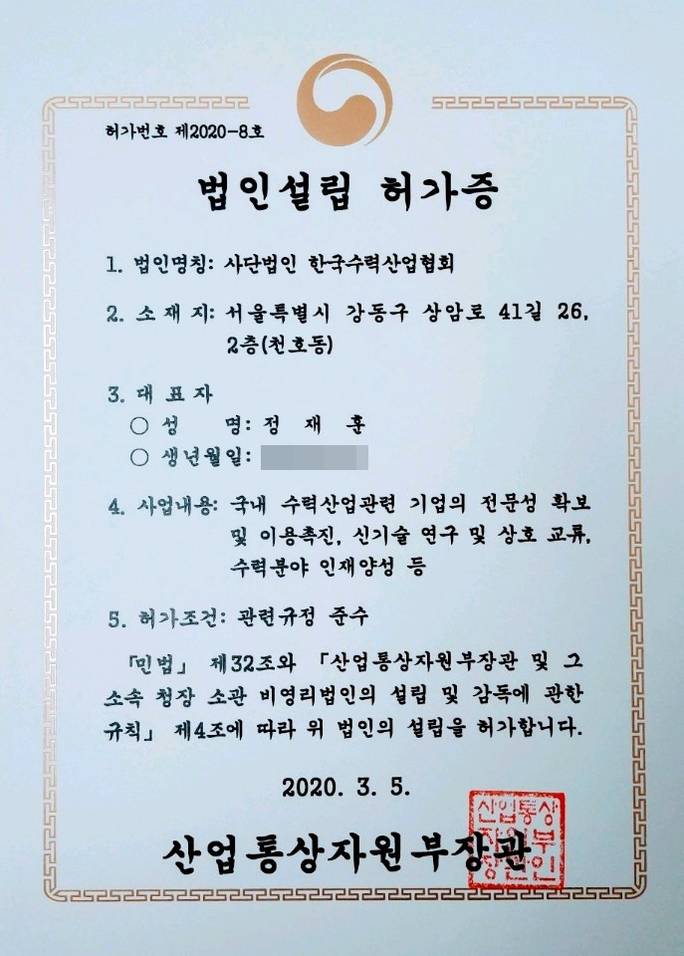 허가번호 제2020-8호
법인설립 허가증
1. 법인명칭: 사단법인 한국수력산업협회
2. 소 재 지: 서울특별시 강동구 상암로 41길 26,
2층(천호동)
3. 대 표 자
○ 성 명: 정 재 훈
○ 생년월일:
4. 사업내용: 국내 수력산업관련 기업의 전문성 확보
및 이용촉진, 신기술 연구 및 상호 교류,
수력분야 인재양성 등
5. 허가조건: 관련규정 준수
「민법」 제32조와 「산업통상자원부장관 및 그
소속 청장 소관 비영리법인의 설립 및 감독에 관한
규칙」 제4조에 따라 위 법인의 설립을 허가합니다.
2020. 3. 5.
산업통상자원부장관
산업통상
자원부
장관인